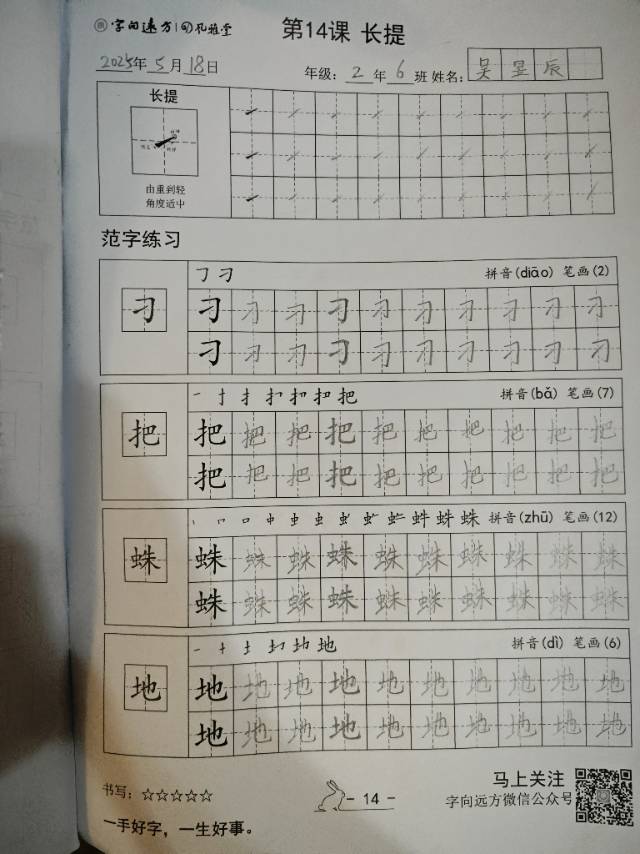 字向远方 孔雅堂
第14课 长提
2025年5月18日
年级：2年6班 姓名：吴昱辰
长提
由重到轻
角度适中
范字练习
刁
拼音(diāo) 笔画(2)
刁 刁 刁 刁 刁 刁 刁 刁 刁 刁
刁 刁 刁 刁 刁 刁 刁 刁 刁 刁
把
拼音(bǎ) 笔画(7)
把 把 把 把 把 把 把 把 把 把
把 把 把 把 把 把 把 把 把 把
蛛
拼音(zhū) 笔画(12)
蛛 蛛 蛛 蛛 蛛 蛛 蛛 蛛 蛛 蛛
蛛 蛛 蛛 蛛 蛛 蛛 蛛 蛛 蛛 蛛
地
拼音(dì) 笔画(6)
地 地 地 地 地 地 地 地 地 地
地 地 地 地 地 地 地 地 地 地
书写：☆☆☆☆☆
- 14 -
马上关注
字向远方微信公众号
一手好字，一生好事。